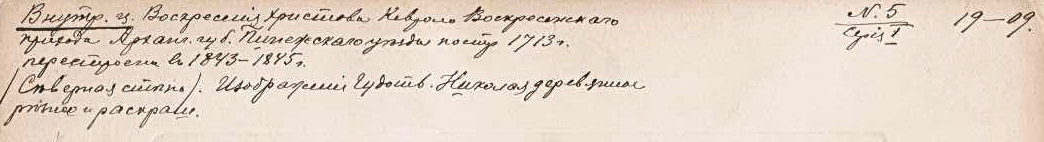 Внутр. ц. Воскресенія Христова Кевроло Воскресенскаго
N. 5
Серія I
19–09.
прихода Арханг. губ. Пинежскаго уѣзда постр 1713 г.
перестроена въ 1843–1845 г.
(Сѣверная стѣна). Изображеніе Чудотв. Николая деревянное
рѣзное и раскраш.